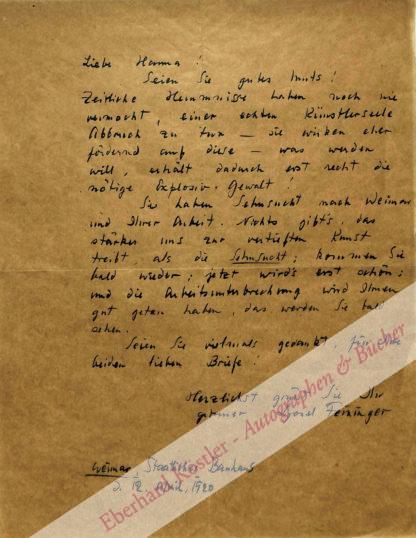 Liebe Hanna!
Seien Sie gutes Muts!
Zeitliche Hemmnisse haben noch nie
vermocht, einer echten Künstlerseele
Abbruch zu tun — sie wirken eher
fördernd auf diese — was werden
will, erhält dadurch erst recht die
nötige Explosiv-Gewalt!
Sie haben Sehnsucht nach Weimar
und Ihrer Arbeit. Nichts gibt's, das
stärker uns zur vertieften Kunst
treibt, als die Sehnsucht; kommen Sie
bald wieder; jetzt wird's erst schön;
und die Arbeitsunterbrechung wird Ihnen
gut getan haben, das werden Sie bald
sehen.
Seien Sie vielmals gedankt, für Ihre
beiden lieben Briefe!
Herzlichst grüßt Sie Ihr
getreuer Lyonel Feininger
Weimar, Staatliches Bauhaus
d. 12. April, 1920
Eberhard Köstler - Autographen & Bücher